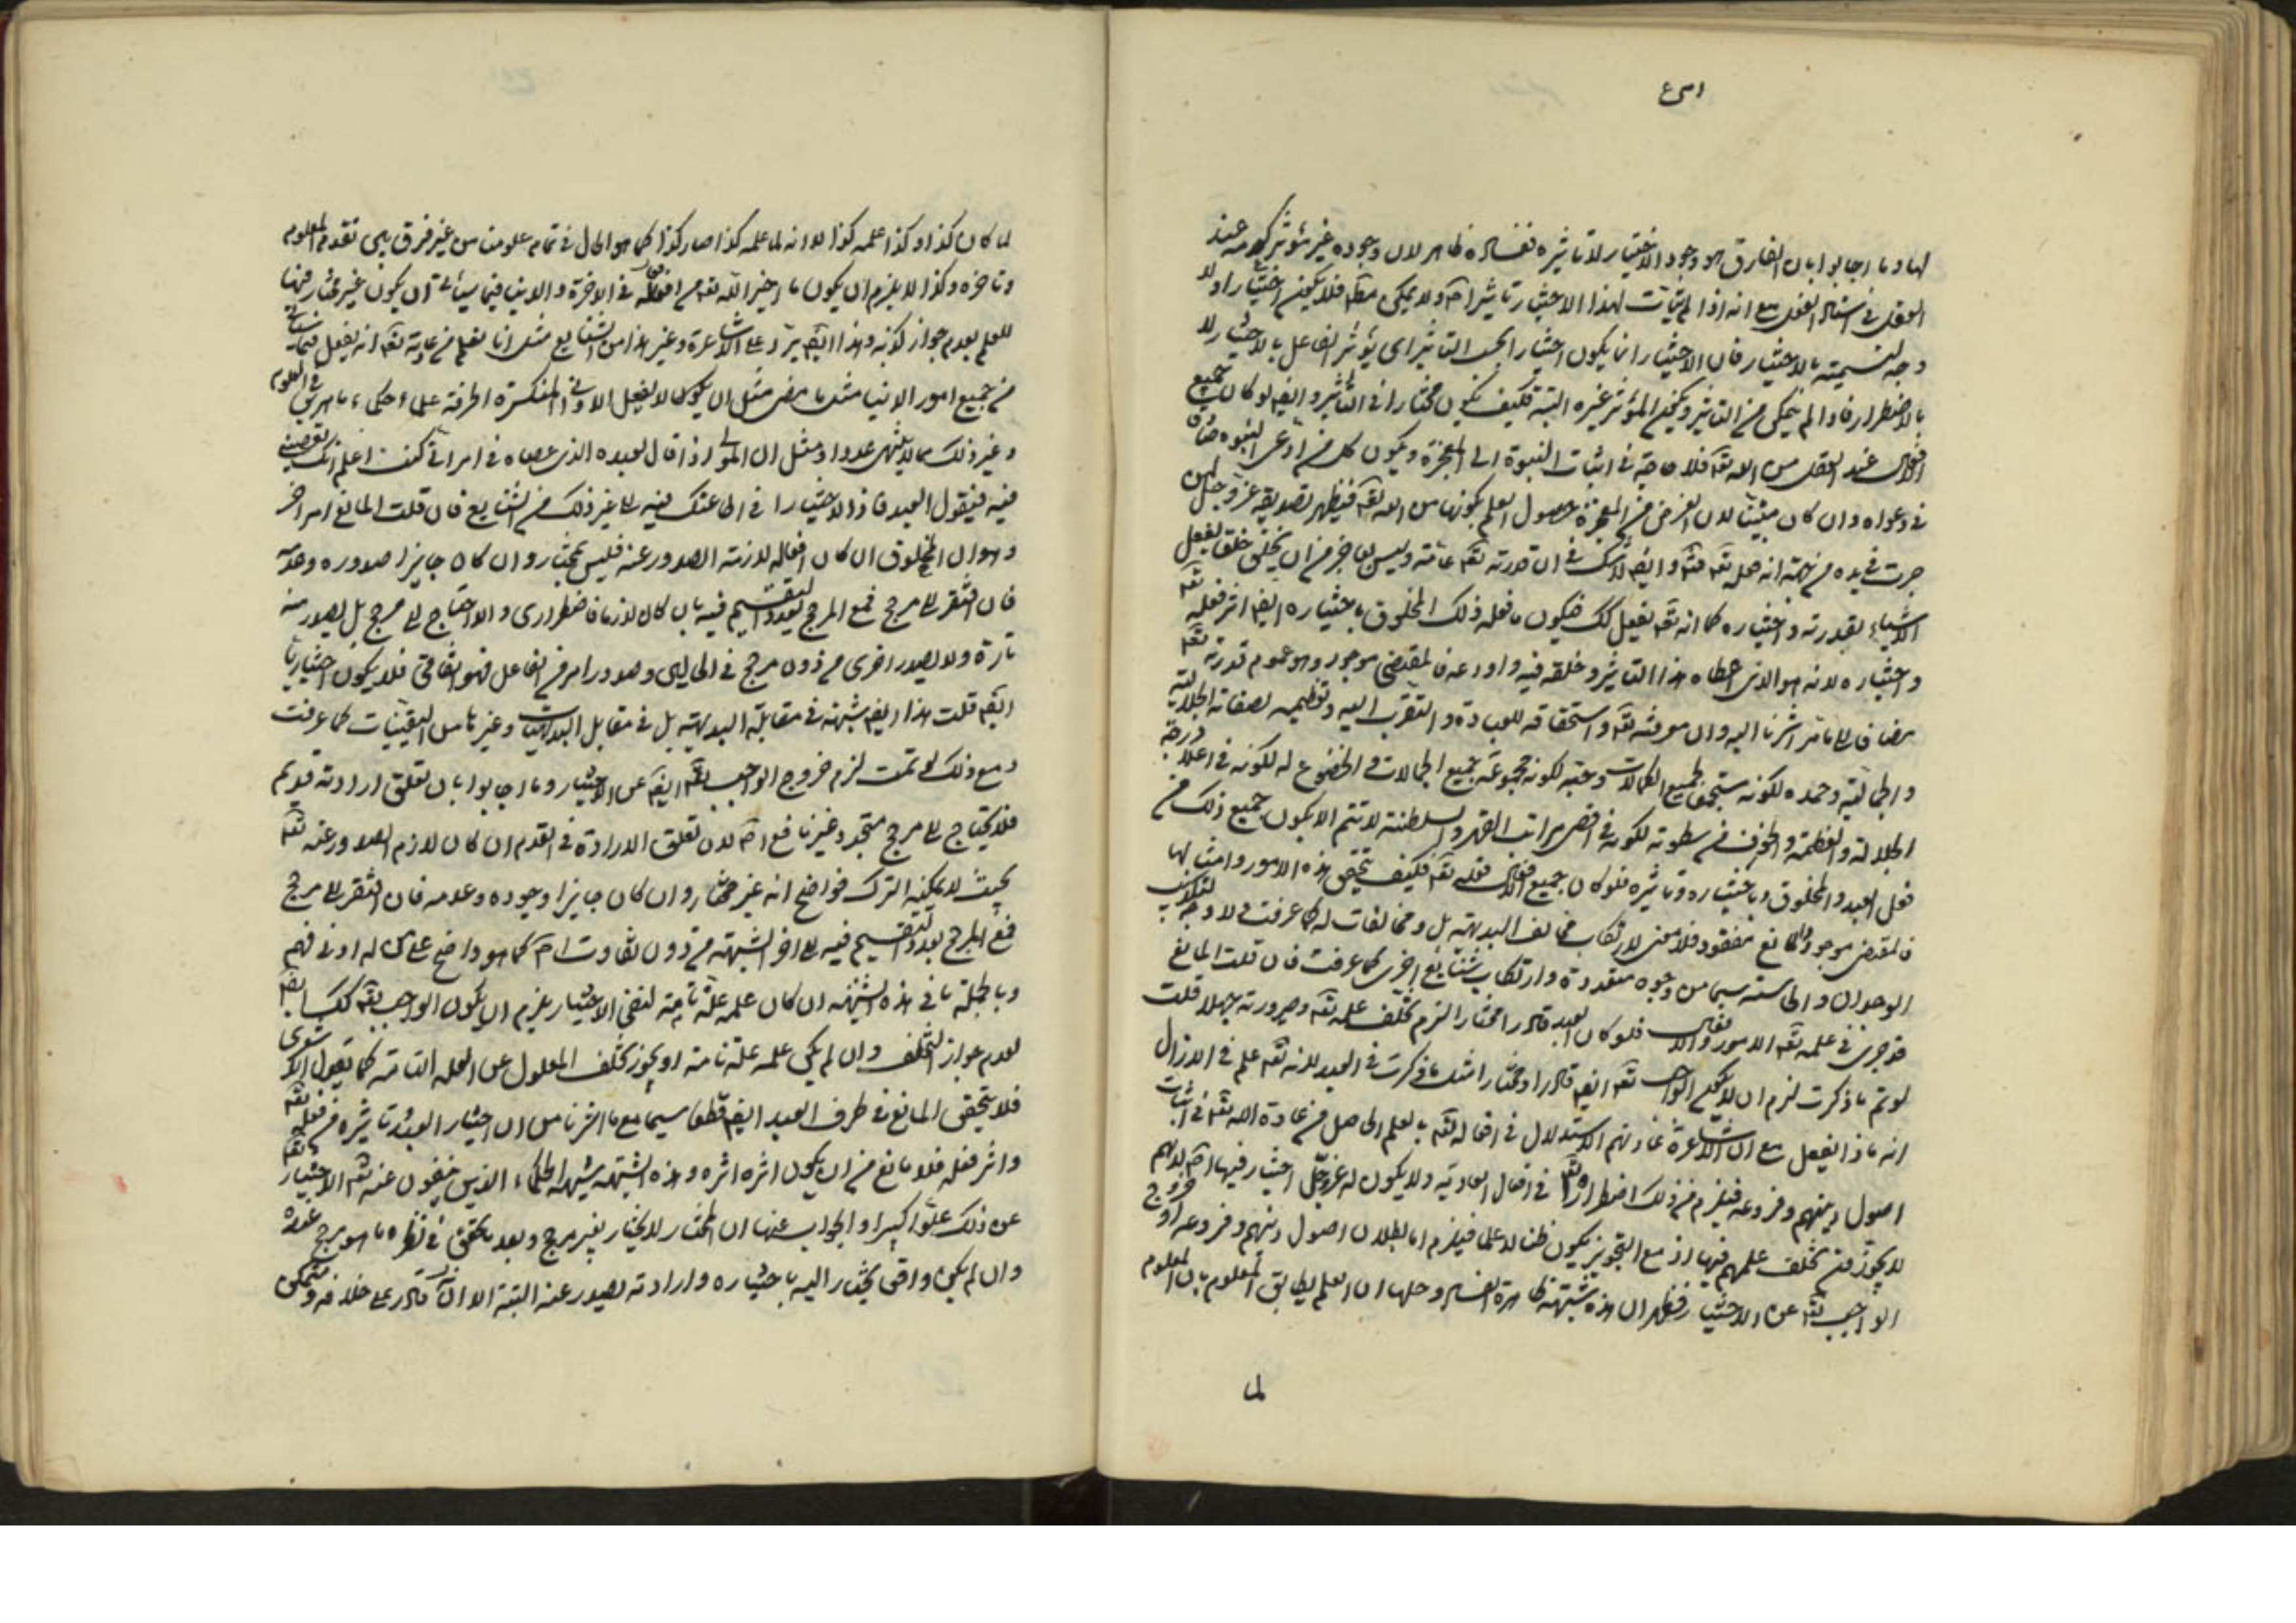 لها وما اجابوا بان الفارق هو وجود الاختيار لا تاثيره ففساده ظاهر لان وجوده غير مؤثر كعدمه عند
العقل في استناد الفعل مع انه اذا لم يثبت لهذا الاختيار تاثير اصلا ولا يمكن فلا يكون اختيارا ولا
وجه لتسميته بالاختيار فان الاختيار انما يكون اختيارا بحسب التاثير اى يؤثر الفاعل بالاختيار لا
بالاضطرار فاذا لم يمكن من التاثير ويكون المؤثر غيره البتة فكيف يكون مختارا في التاثير وايضا لو كان جميع
الافعال عند العقل من الله تعه فلا حاجة في اثبات النبوة الى المعجزة ويكون كل من ادعى النبوة صادقا
في دعواه وان كان متنبيا لان الغرض من المعجزة حصول العلم بكونها من الله تعه فيظهر تصديقه عز وجل لمن
جرت في يده من جهة انه فعله تعه وايضا لا شك في ان قدرته تعه عامة وليس بعاجز من ان يخلق خلقا يفعل
الاشياء بقدرته واختياره كما انه تعه يفعل كك فيكون ما فعله ذلك المخلوق باختياره ايضا اثر فعله تعه
واختياره لانه هو الذي اعطاه هذا التاثير وخلقه فيه واودعه فالمقتضى موجود وهو عموم قدرته تعه
مضافا الى ما مر اشرنا اليه وان معرفته تعه واستحقاقه للعبادة والتقرب اليه وتعظيمه لصفاته الجلالية
والجمالية وحمده لكونه مستجمعا لجميع الكمالات وحبه لكونه مجموعة جميع الجمالات والخضوع له لكونه في اعلا درجة
الجلالة والعظمة والخوف من سطوته لكونه في اقصى مراتب القهر والسلطنة لا تتم الا بكون جميع ذلك من
فعل العبد والمخلوق وباختياره وتاثيره فلو كان جميع الافعال فعله تعه فكيف يتحقق هذه الامور وامثالها
فالمقتضى موجود والمانع مفقود فلا معنى لارتكاب مخالف البديهة بل ومخالفات له كما عرفت ولا وجه لتكذيب
الوجدان والحاسة سيما من وجوه متعددة وارتكاب شنايع اخرى كما عرفت فان قلت المانع
قد جرى في علمه تعه الامور والافعال فلو كان العبد قادرا مختارا لزم تخلف علمه تعه وصيرورته جهلا قلت
لو تم ما ذكرت لزم ان لا يكون الواجب تعه ايضا قادرا ومختارا مثل ما ذكرت في العبد لانه تعه علم في الازال
انه ماذا يفعل مع ان الاشاعرة عادتهم الاستدلال في افعاله تعه بالعلم الحاصل من عادة الله تعه في اثبات
اصول دينهم وفروعه فيلزم من ذلك اضطراره تعه في افعاله العادية ولا يكون له عز وجل اختيار فيها اصلا لانهم
لا يجوزون تخلف علمهم فيها اذ مع التجويز يكون ظنا لا علما فيلزم اما بطلان اصول دينهم وفروعه او خروج
الواجب تعه عن الاختيار فظهر ان هذه شبهة ظاهرة الفساد وحلها ان العلم يطابق المعلوم بان المعلوم
لما
لما كان كذا وكذا علمه كذا لا انه لما علمه كذا صار كذا كما هو الحال في تمام علومنا من غير فرق بين تقدم المعلوم
وتاخره وكذا لا يلزم ان يكون ما اخبر الله تعه من افعاله في الاخرة والدنيا فيما سياتي ان يكون غير مختار فيها
للعلم بعدم جواز كذبه وهذا ايضا يرد على الاشاعرة وغير هذا من الشنايع مثل انا نعلم من عادته تعه انه يفعل
من جميع امور الدنيا مثل ما مضى مثل ان يكون لا يفعل الاواني المنكسرة الخزفة علماء حكماء ماهرين في العلوم
وغير ذلك مما لا يتناهى عددا ومثل ان المولى اذا قال لعبده الذي عصاه في امر اني كنت اعلم انك تعصيني
فيه فيقول العبد فاذا لا اختيار لى في اطاعتك فيه الى غير ذلك من الشنايع فان قلت المانع امر اخر
وهو ان المخلوق ان كان افعاله لازمة الصدور عنه فليس بمختار وان كان جايزا صدوره وعدمه
فان افتقر الى مرجح فمع المرجح يعود التقسيم فيه بان كان لازما فاضطراري والا احتاج الى مرجح بل يصدر منه
تارة ولا يصدر اخرى من دون مرجح في الحالين وصدور امر من الفاعل فهو اتفاقي فلا يكون اختياريا
ايضا قلت هذا ايضا شبهة في مقابلة البديهية بل في مقابل البديهيات وغيرها من اليقينيات كما عرفت
ومع ذلك لو تمت لزم خروج الواجب تعه ايضا عن الاختيار وما اجابوا بان تعلق ارادته قديم
فلا يحتاج الى مرجح متجدد غير نافع اصلا لان تعلق الارادة في القدم ان كان لازم الصدور عنه تعه
بحيث لا يمكنه الترك فواضح انه غير مختار وان كان جايزا وجوده وعدمه فان افتقر الى مرجح
فمع المرجح يعود التقسيم فيه الى اخر الشبهة من دون تفاوت اصلا كما هو واضح على من له ادنى فهم
وبالجملة ما في هذه الشبهة ان كان علمه علة تامة لنفي الاختيار يلزم ان يكون الواجب تعه كك ايضا
لعدم جواز التخلف وان لم يكن علمه علة تامة او يجوز تخلف المعلول عن العلة التامة كما يقول الاشعري
فلا يتحقق المانع في طرف العبد ايضا قطعا سيما مع ما اشرنا من ان اختيار العبد وتاثيره من فعله تعه
واثر فعله فلا مانع من ان يكون اثره اثره وهذه الشبهة شبهة الحكماء الذين ينفون عنه تعه الاختيار تعه
عن ذلك علوا كبيرا والجواب عنها ان المختار لا يختار بغير مرجح وبعد ما تحقق في نظره ما هو مرجح عنده
وان لم يكن واقعى يختار اليه باختياره وارادته يصدر عنه البتة الا انه قادر على خلافه ومتمكن